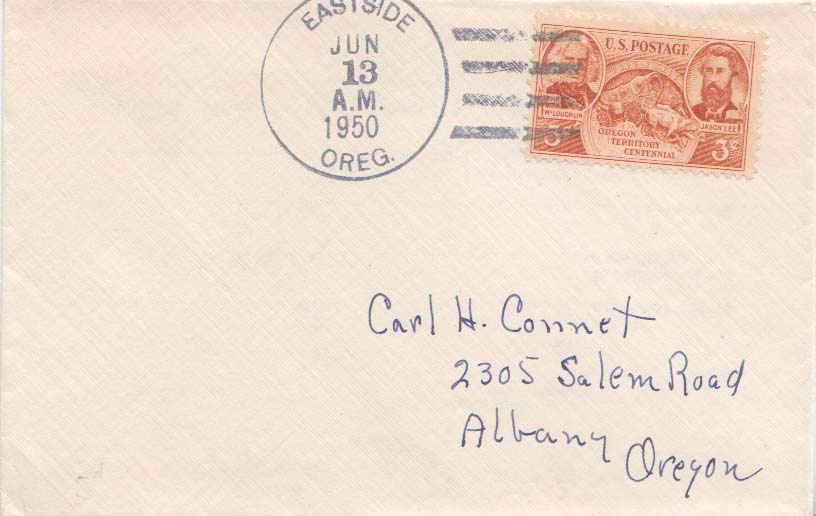 EASTSIDE
JUN
13
A.M.
1950
OREG.
U.S. POSTAGE
McLOUGHLIN
JASON LEE
OREGON
TERRITORY
CENTENNIAL
3¢
Carl H. Connet
2305 Salem Road
Albany
Oregon